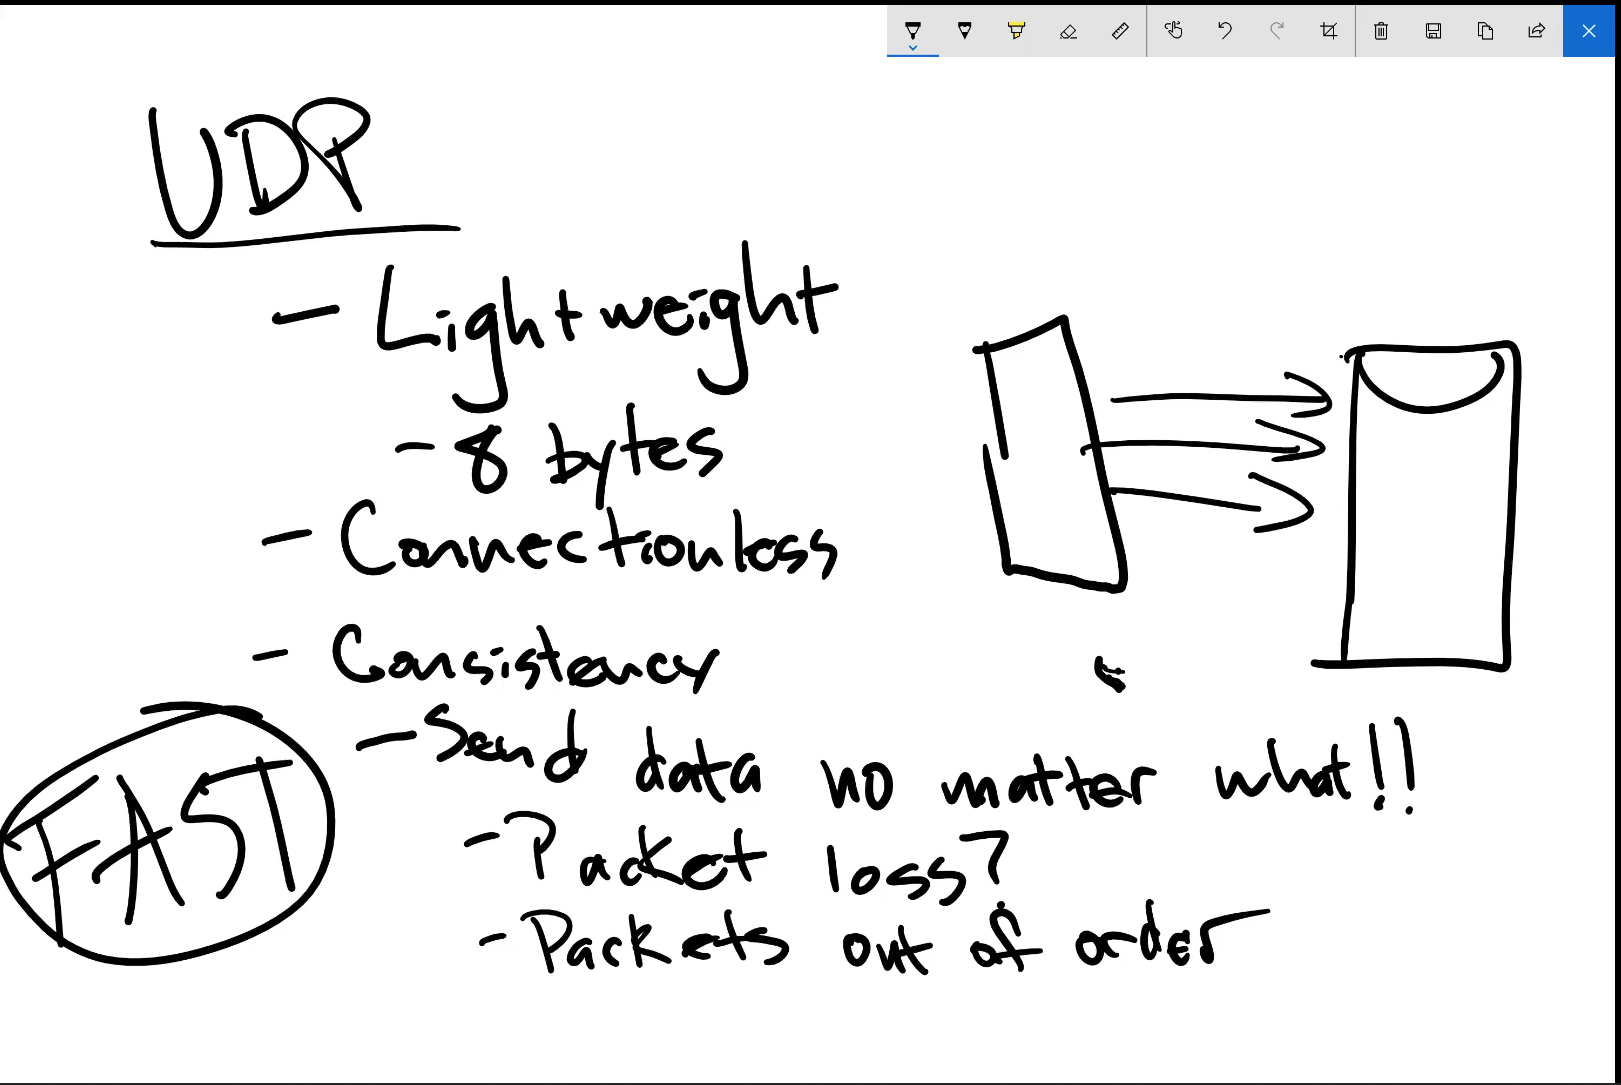 UDP
- Lightweight
- 8 bytes
- Connectionless
- Consistency
- Send data no matter what!!
- Packet loss?
- Packets out of order
FAST